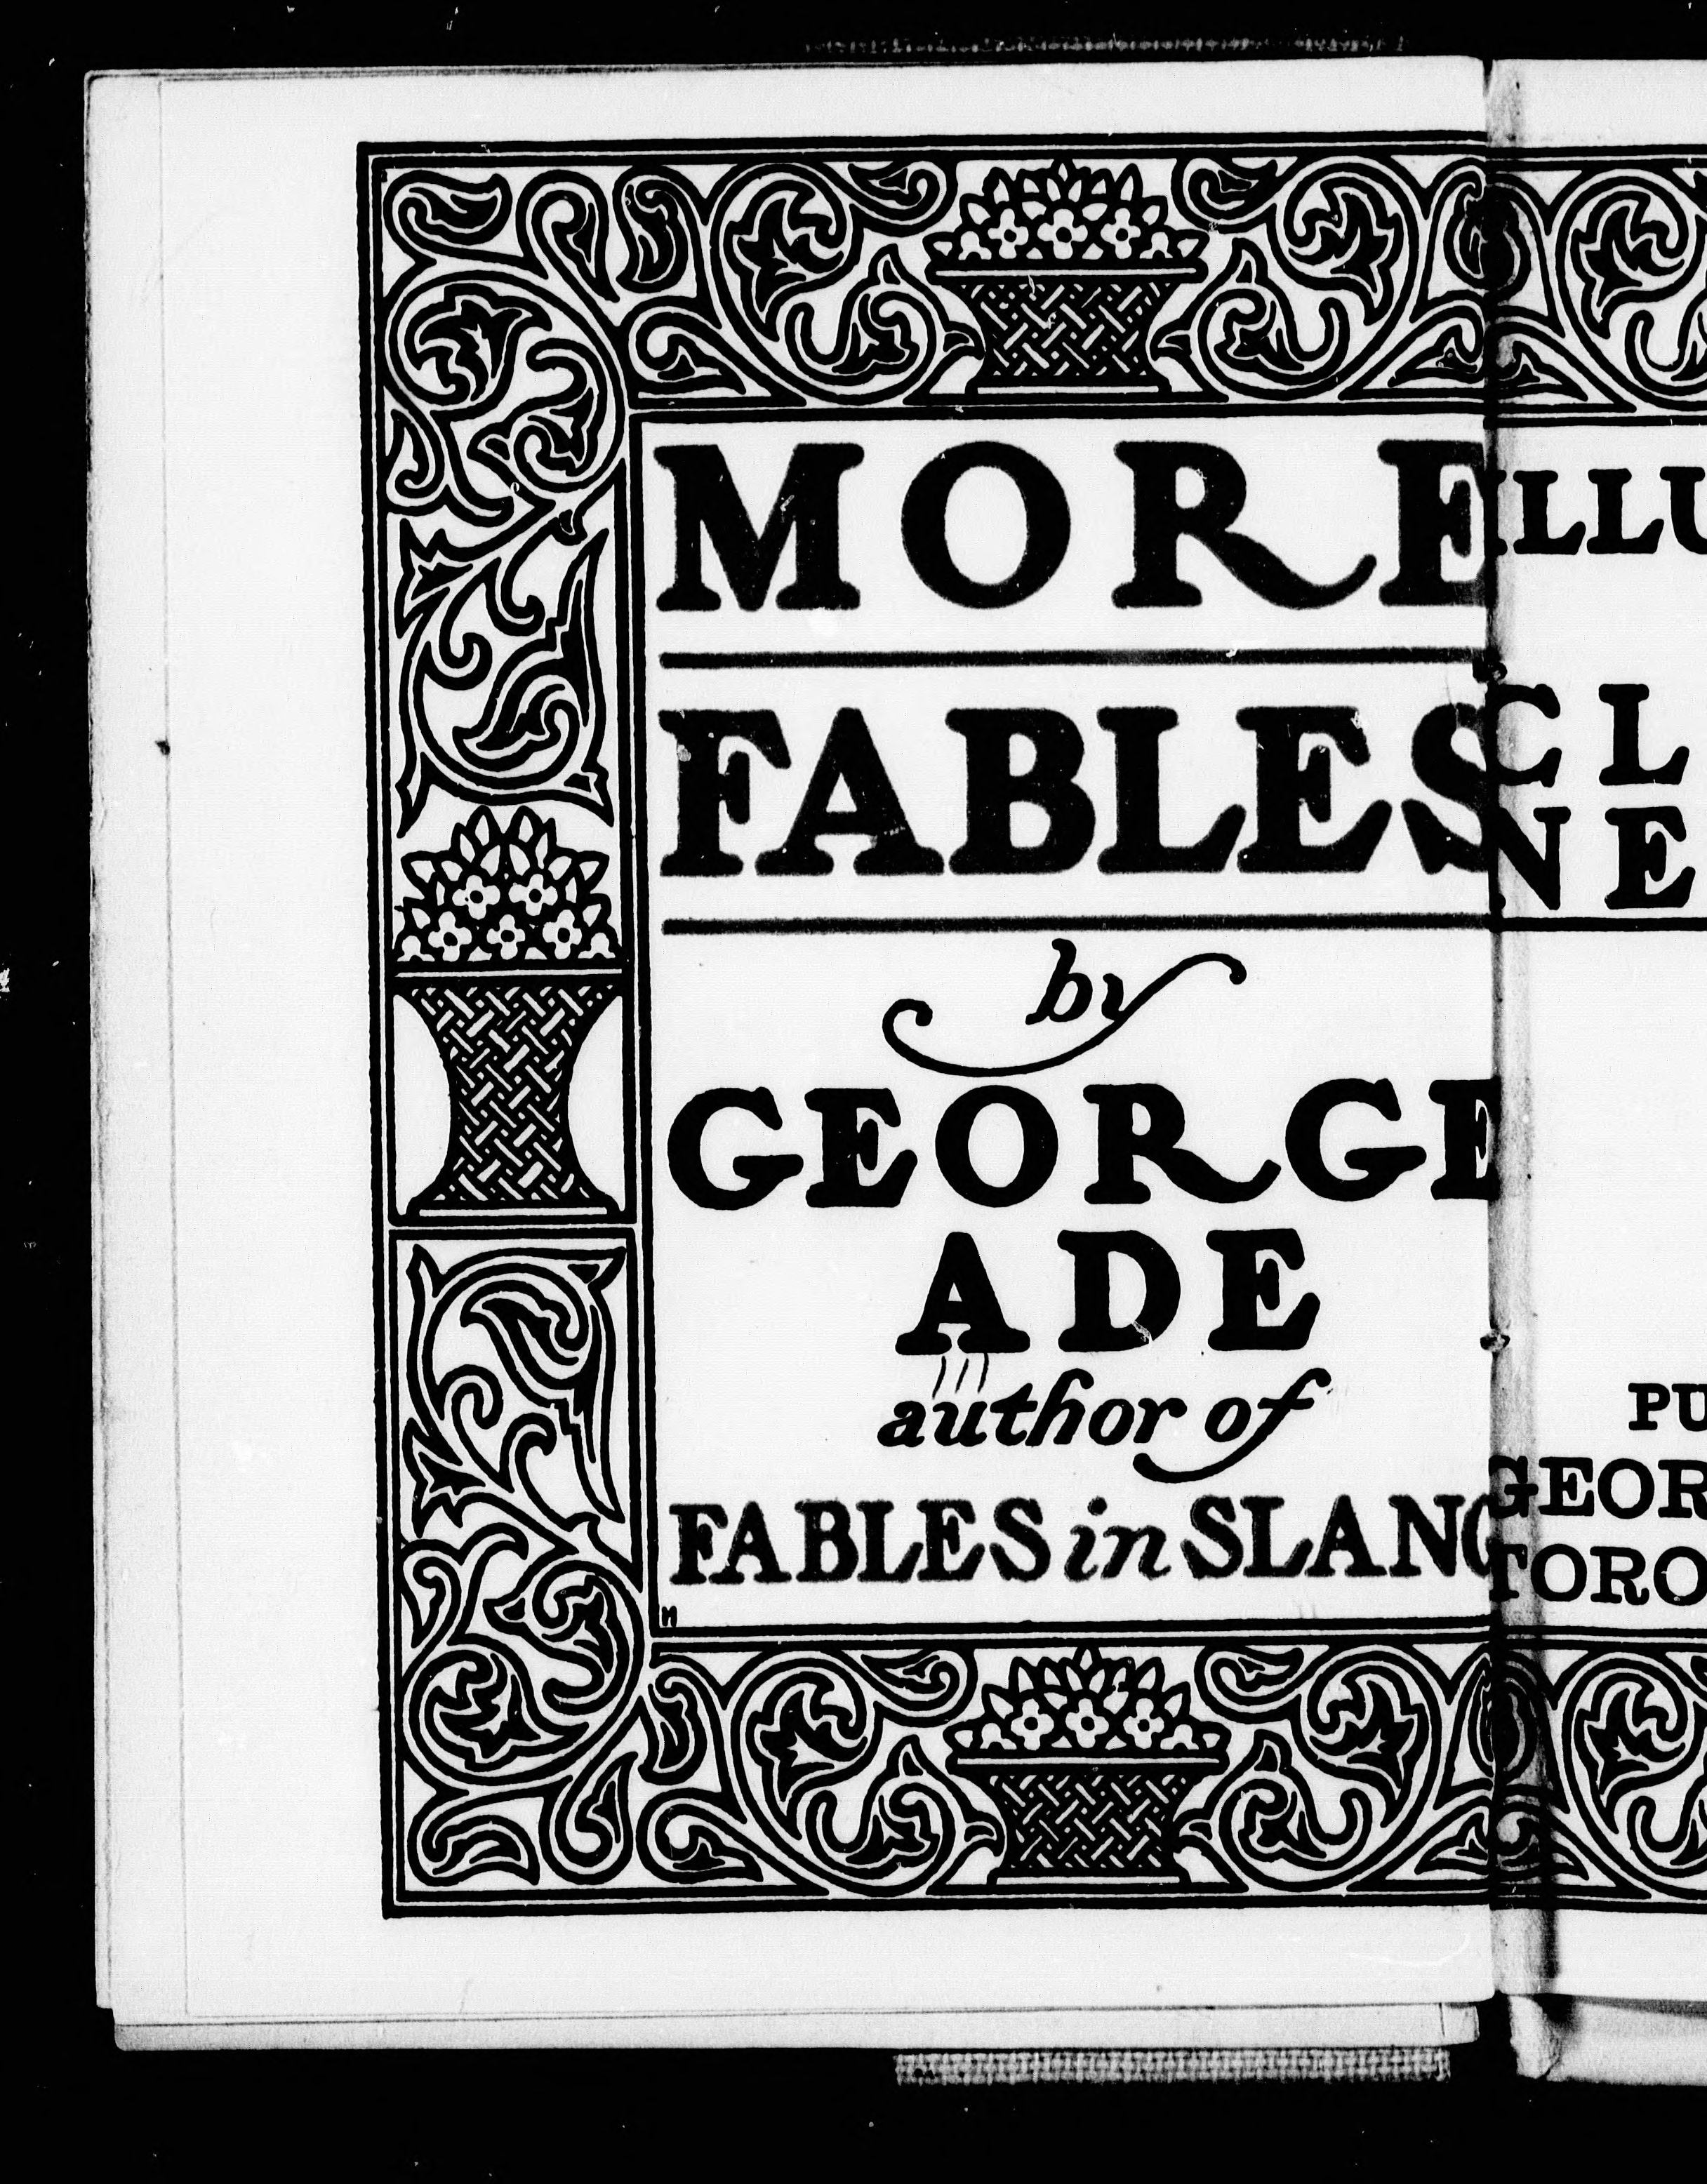 MORE
FABLES
by
GEORGE
ADE
author of
FABLES in SLANG
ILLU
CL
NE
PU
GEOR
TORO